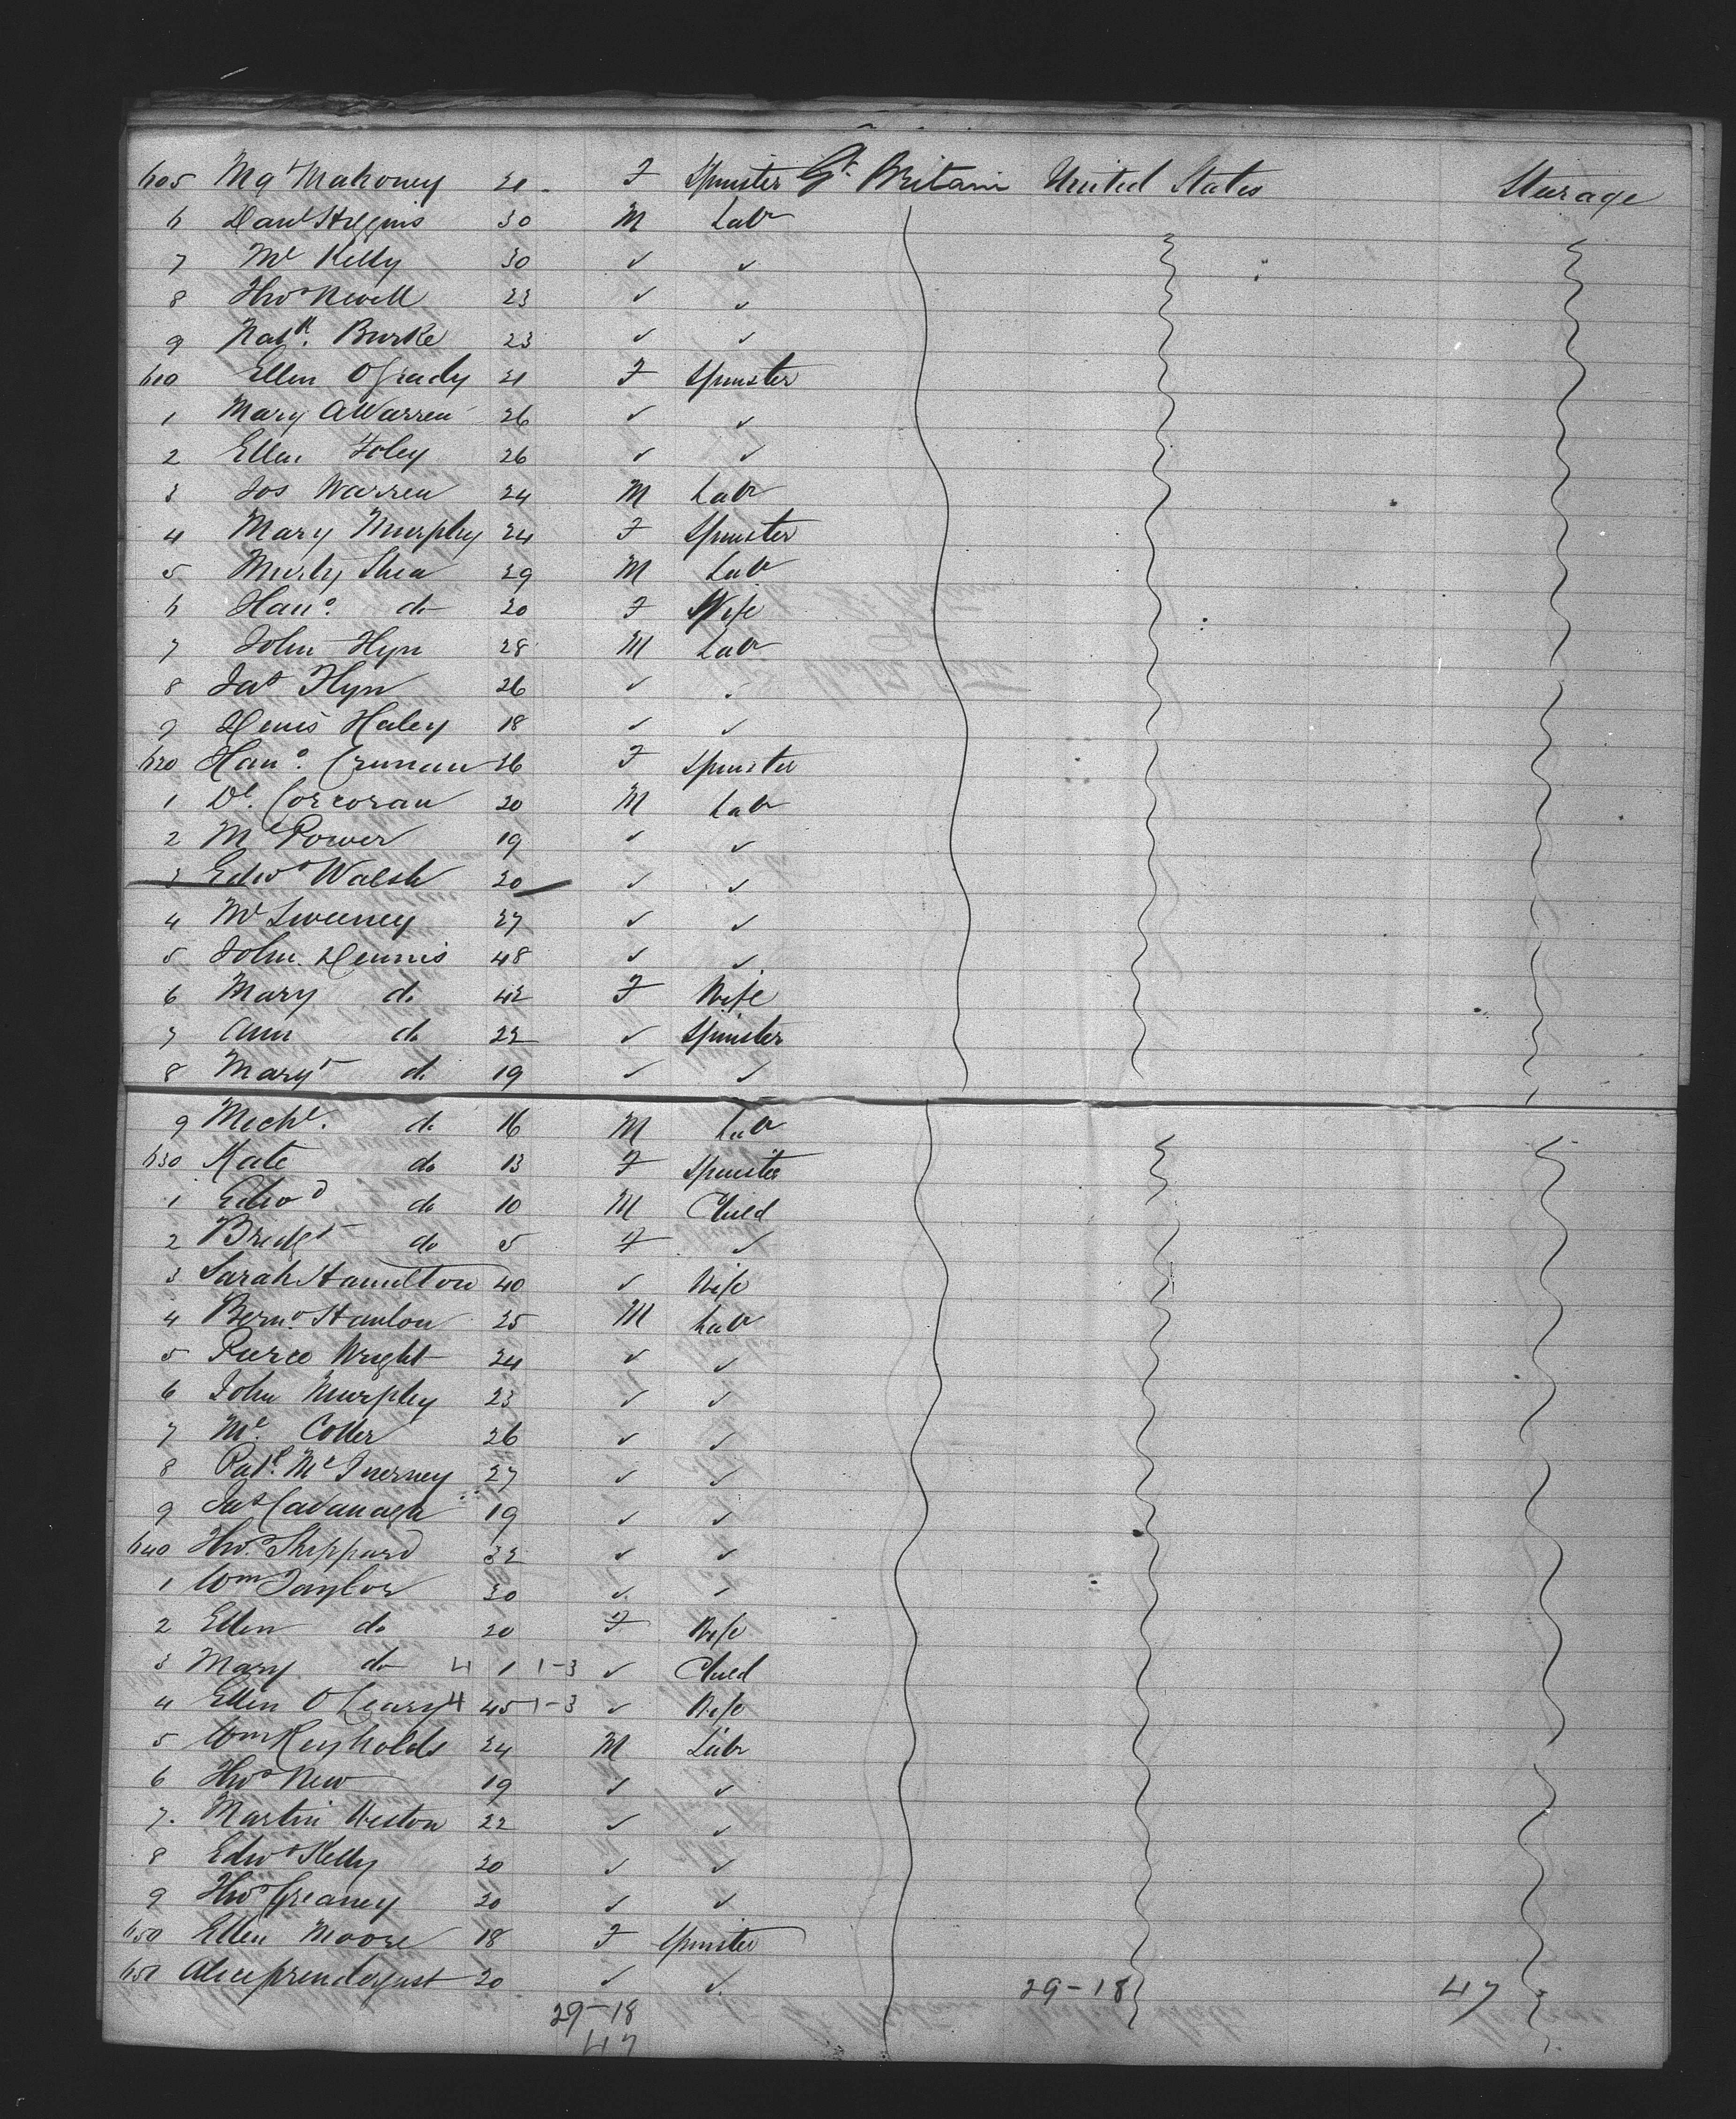 605 Mgt Mahoney 21 F Spinster Gt Britain United States Sturage
6 Danl Higgins 30 M Labr
7 Ml Kelly 30 ✓ ✓
8 Thos Newell 23 ✓ ✓
9 Patk. Burke 23 ✓ ✓
610 Ellen OGrady 21 F Spinster
1 Mary A Warren 26 ✓ ✓
2 Ellen Foley 26 ✓ ✓
3 Jos Warren 24 M Labr
4 Mary Murphy 24 F Spinster
5 Murty Shea 29 M Labr
6 Hano. do 20 F Wife
7 John Flyn 28 M Labr
8 Jas Flyn 26 ✓ ✓
9 Denis Haley 18 ✓ ✓
620 Hano. Crunan 26 F Spinster
1 Dl. Corcoran 20 M Labr
2 Ml Power 19 ✓ ✓
3 Edwd Walsh 20 ✓ ✓
4 Ml Sweeney 27 ✓ ✓
5 John Dennis 48 ✓ ✓
6 Mary do 42 F Wife
7 Ann do 22 ✓ Spinster
8 Margt do 19 ✓ ✓
9 Michl. do 16 M Labr
630 Kate do 13 F Spinster
1 Edwd do 10 M Child
2 Bridgt do 5 F ✓
3 Sarah Hamilton 40 ✓ Wife
4 Bernd. Hanlon 25 M Labr
5 Pierce Wright 24 ✓ ✓
6 John Murphy 23 ✓ ✓
7 Ml. Coller 26 ✓ ✓
8 Patk. McInerney 27 ✓ ✓
9 Jas Cavanagh 19 ✓ ✓
640 Thos. Shippard 32 ✓ ✓
1 Wm Taylor 30 ✓ ✓
2 Ellen do 20 F Wife
3 Mary do 4 1 1-3 ✓ Child
4 Ellen O Leary 4 45 1-3 ✓ Wife
5 Wm Reynolds 24 M Labr
6 Thos New 19 ✓ ✓
7. Martin Weston 22 ✓ ✓
8 Edwd Kelly 20 ✓ ✓
9 Thos Greaney 20 ✓ ✓
650 Ellen Moore 18 F Spinster
651 Alice prendergast 20 ✓ ✓ 29-18 47
29-18
47